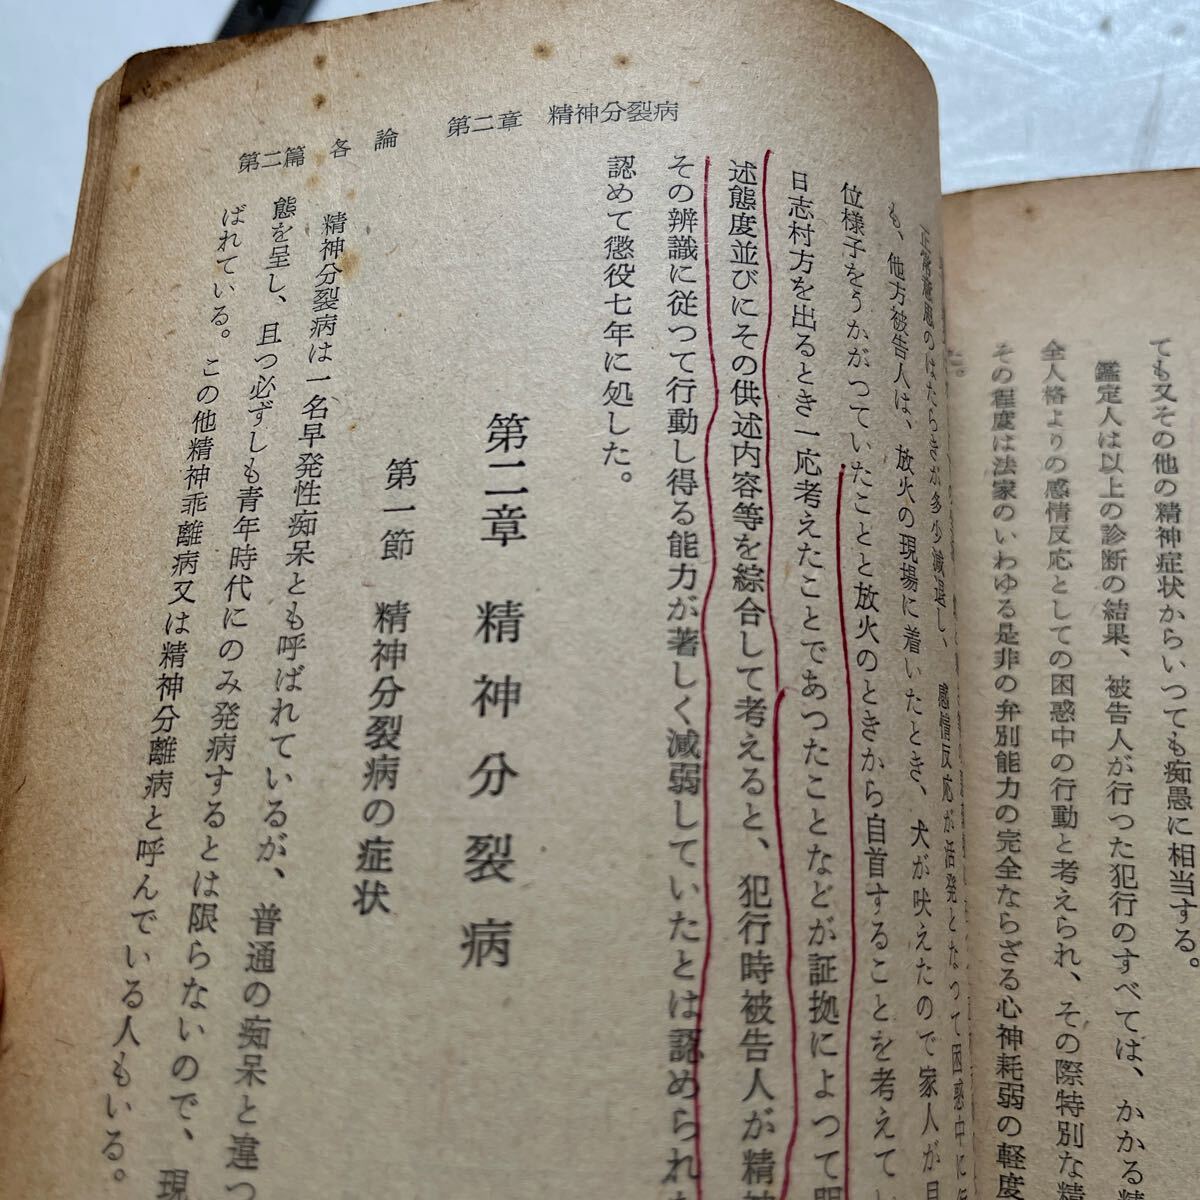 ても又その他の精神症状からいつても痴愚に相当する。
鑑定人は以上の診断の結果、被告人が行つた犯行のすべては、かかる精
全人格よりの感情反応としての困惑中の行動と考えられ、その際特別な精
その程度は法家のいわゆる是非の弁別能力の完全ならざる心神耗弱の軽度
た。
第二篇 各論 第二章 精神分裂病
正常意思のはたらきが多少減退し、感情反応が活発となつて困惑中に
も、他方被告人は、放火の現場に着いたとき、犬が吠えたので家人が
位様子をうかがつていたことと放火のときから自首することを考えて
日志村方を出るとき一応考えたことであつたことなどが証拠によつて
述態度並びにその供述内容等を綜合して考えると、犯行時被告人が精神
その辨識に従つて行動し得る能力が著しく減弱していたとは認められ
認めて懲役七年に処した。
第二章 精神分裂病
第一節 精神分裂病の症状
精神分裂病は一名早発性痴呆とも呼ばれているが、普通の痴呆と違つ
態を呈し、且つ必ずしも青年時代にのみ発病するとは限らないので、現
ばれている。この他精神乖離病又は精神分離病と呼んでいる人もいる。